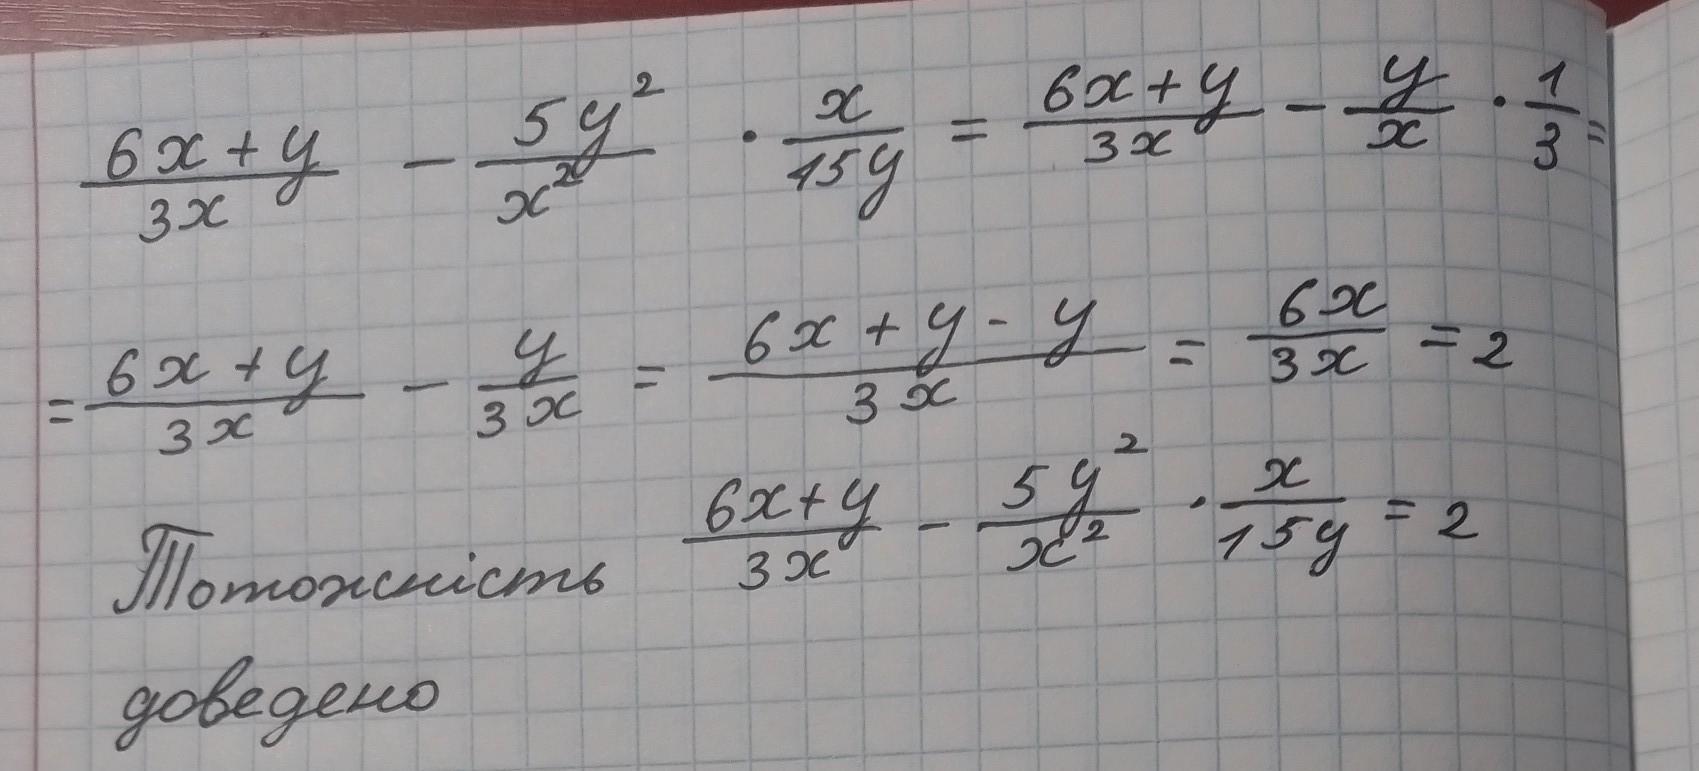 \frac{6x+y}{3x} - \frac{5y^2}{x^2} \cdot \frac{x}{15y} = \frac{6x+y}{3x} - \frac{y}{x} \cdot \frac{1}{3} =
= \frac{6x+y}{3x} - \frac{y}{3x} = \frac{6x+y-y}{3x} = \frac{6x}{3x} = 2
Тотожність \frac{6x+y}{3x} - \frac{5y^2}{x^2} \cdot \frac{x}{15y} = 2
доведено